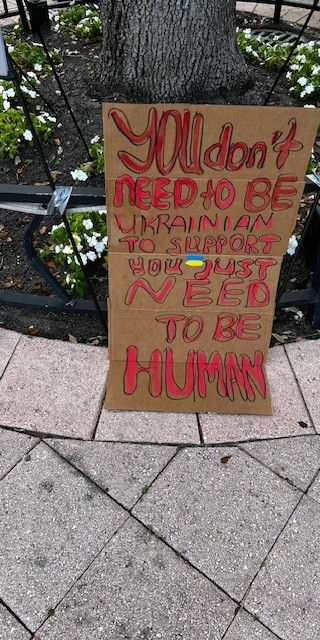 YOU don't
NEED to BE
UKRAINIAN
TO SUPPORT
YOU JUST
NEED
TO BE
HUMAN